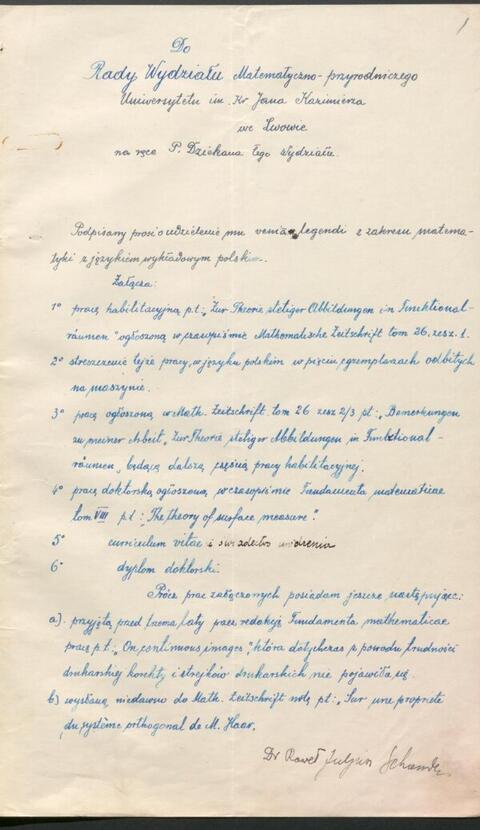 1
Do
Rady Wydziału Matematyczno-przyrodniczego
Uniwersytetu im. Kr. Jana Kazimierza
we Lwowie
na ręce P. Dziekana tego Wydziału.
Podpisany prosi o udzielenie mu veniam legendi z zakresu matema-
tyki z językiem wykładowym polskim.
Załącza:
1° pracę habilitacyjną p.t.: „Zur Theorie stetiger Abbildungen in Funktional-
räumen" ogłoszoną w czasopiśmie Mathematische Zeitschrift tom 26, zesz. 1.
2° streszczenie tejże pracy, w języku polskim w pięciu egzemplarzach odbitych
na maszynie.
3° pracę ogłoszoną w Math. Zeitschrift tom 26 zesz 2/3 pt: „Bemerkungen
zu meiner Arbeit „Zur Theorie stetiger Abbildungen in Funktional-
räumen", będącą dalszą częścią pracy habilitacyjnej.
4° pracę doktorską ogłoszoną w czasopiśmie Fundamenta mathematicae
tom VIII p.t: „The theory of surface measure".
5° curriculum vitae i świadectwo urodzenia
6° dyplom doktorski.
Prócz prac załączonych posiadam jeszcze następujące:
a). przyjętą przed trzema laty przez redakcję Fundamenta mathematicae
pracę p.t: „On continuous images", która dotychczas z powodu trudności
drukarskiej korekty i strejków drukarskich nie pojawiła się.
b) wysłaną niedawno do Math. Zeitschrift notę pt: „Sur une propriété
du système orthogonal de M. Haar.
Dr Paweł Juljusz Schauder